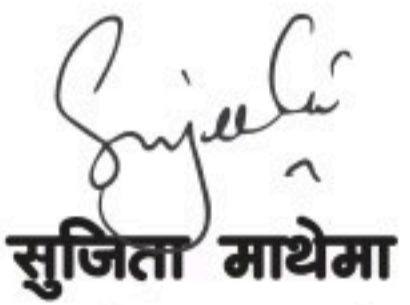 सुजिता माथेमा